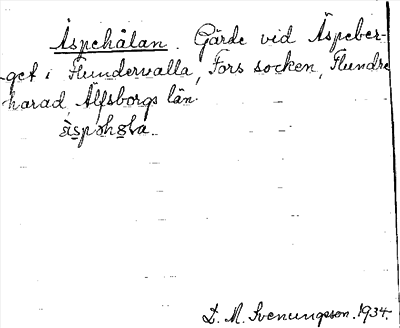 Äspehålan. Gärde vid Äspeber-
get i Flundervalla, Fors socken, Flundre
härad, Älfsborgs län.
D. M. Svenungsson. 1934.